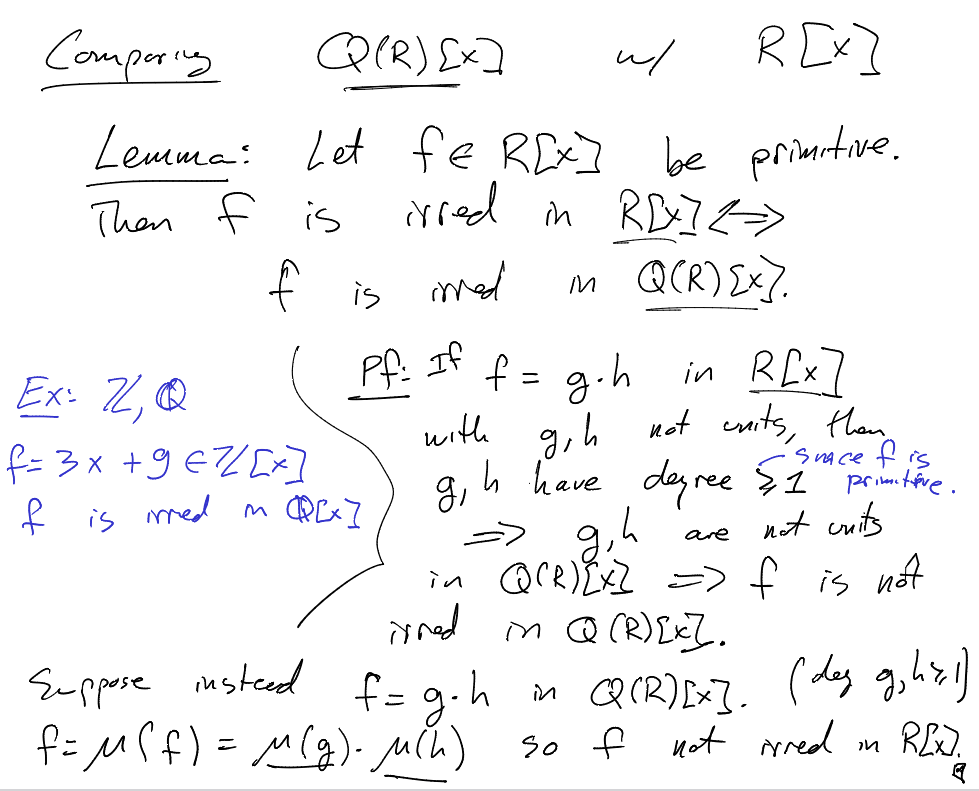 Comparing Q(R)[x] w/ R[x]
Lemma: Let f ∈ R[x] be primitive.
Then f is irred in R[x] <=>
f is irred in Q(R)[x].
Ex: ℤ, ℚ
f = 3x + 9 ∈ ℤ[x]
f is irred in ℚ[x]
Pf: If f = g·h in R[x]
with g,h not units, then
g,h have degree ≥ 1
since f is
primitive.
=> g,h are not units
in Q(R)[x] => f is not
irred in Q(R)[x].
Suppose instead f = g·h in Q(R)[x]. (deg g,h ≥ 1)
f = μ(f) = μ(g)·μ(h) so f not irred in R[x].